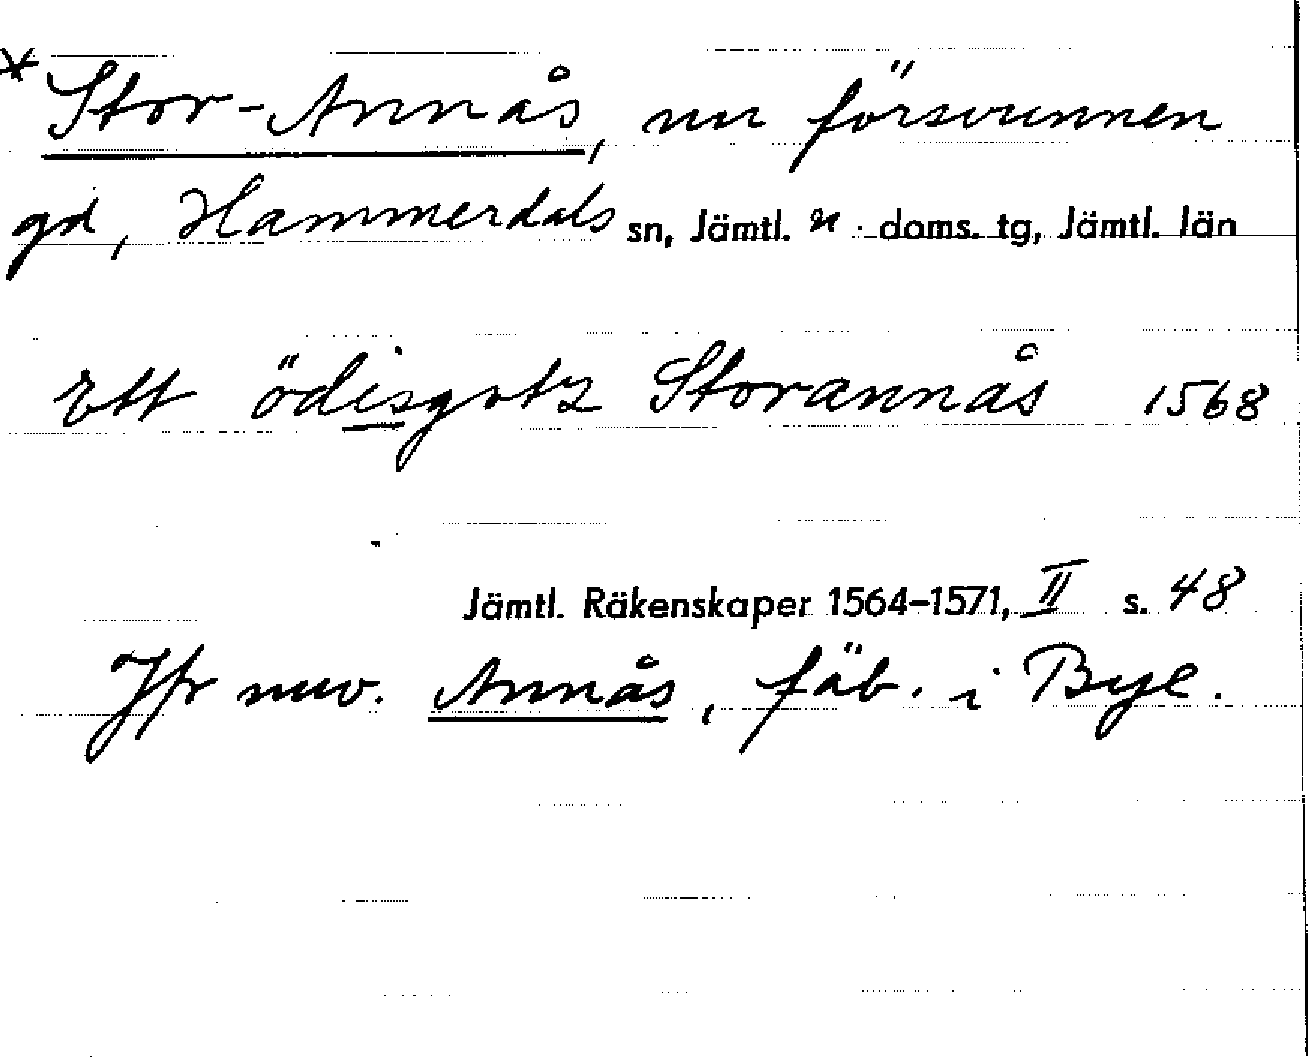 * Stor-Annås, nu försvunnen
gd, Hammerdals sn, Jämtl. n. doms. tg, Jämtl. län
Ett ödisgotz Storannås 1568
Jämtl. Räkenskaper 1564-1571, II s. 48
Jfr nuv. Annås, fäb. i Bye.